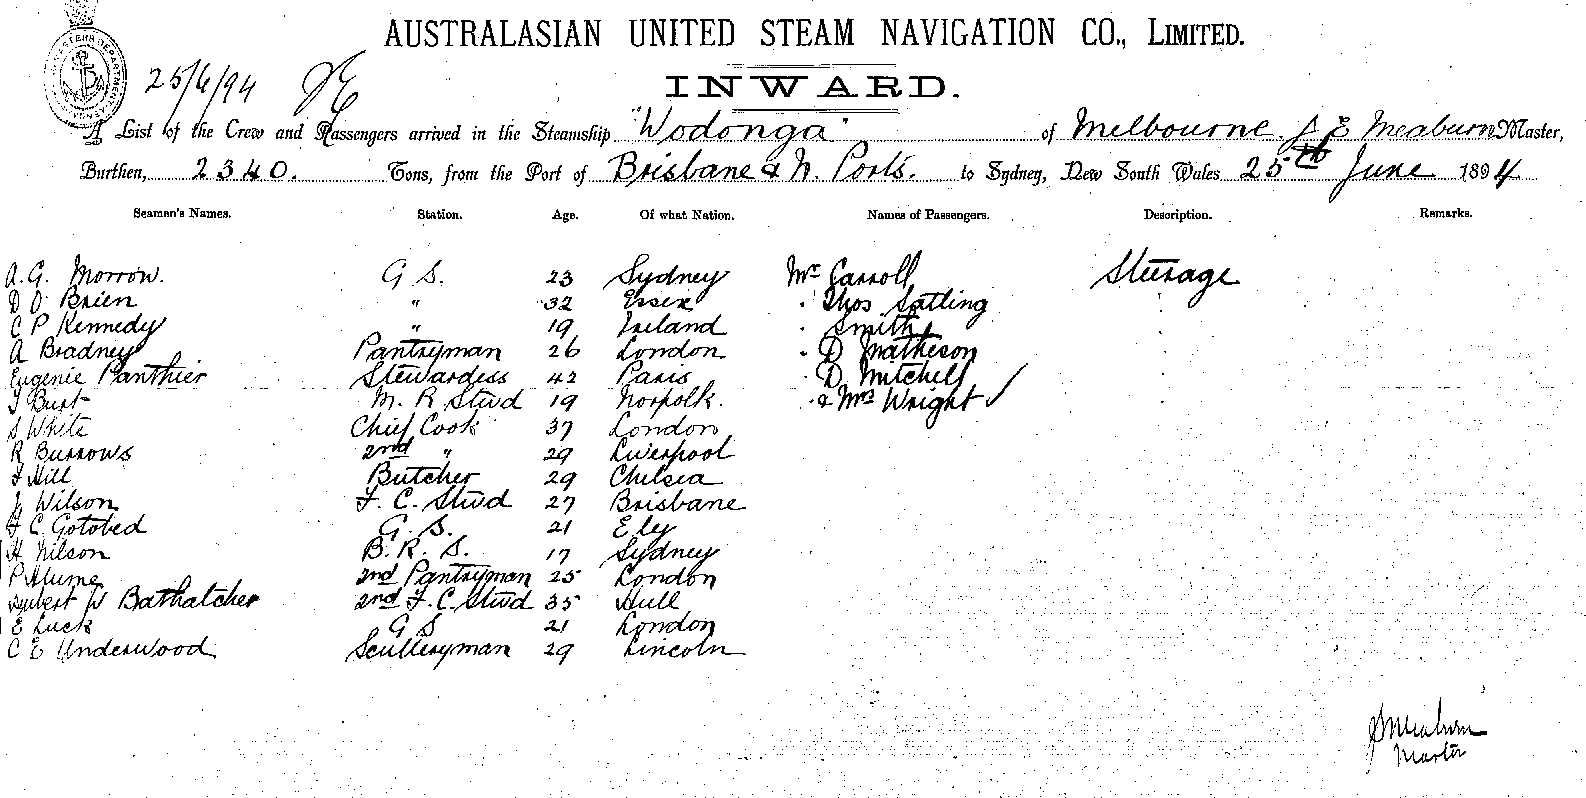 AUSTRALASIAN UNITED STEAM NAVIGATION CO., LIMITED.
25/6/94
INWARD.
A List of the Crew and Passengers arrived in the Steamship "Wodonga" of Melbourne. J E Meaburn Master,
Burthen, 2340. Tons, from the Port of Brisbane & N. Ports. to Sydney, New South Wales 25th June 1894
Seamen's Names. Station. Age. Of what Nation. Names of Passengers. Description. Remarks.
A. G. Morrow. G S. 23 Sydney Mr Carroll Steerage
D O Brien " 32 Essex . Thos Satling
C P Kennedy " 19 Ireland . Smith
A Bradney Pantryman 26 London . D Matheson
Eugenie Panthier Stewardess 42 Paris . D. Mitchell
J Burt M. R Stwd 19 Norfolk. . & Mrs Wright ✓
S White Chief Cook 37 London
R Burrows 2nd " 29 Liverpool
F Hill Butcher 29 Chelsea
J Wilson F. C. Stwd 27 Brisbane
F C Gotobed G. S. 21 Ely
H Nilson B. R. S. 17 Sydney
P Hume 2nd Pantryman 25 London
W Bathatcher 2nd F. C. Stwd 35 Hull
E Luck G S 21 London
C E Underwood Sculleryman 29 Lincoln
J E Meaburn
Master